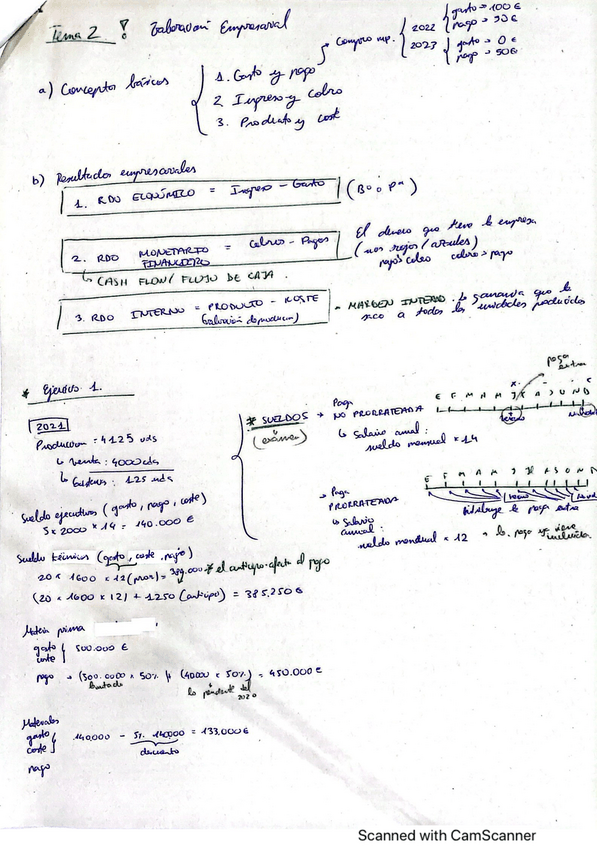 Tema 2 ! Valoración Empresarial
a) Conceptos básicos
1. Gasto y pago
2 Ingreso y cobro
3. Producto y coste
Compro mp.
2022
gasto → 100 €
pago → 50 €
2023
gasto → 0 €
pago → 50 €
b) Resultados empresariales
1. RDO ECONÓMICO = Ingreso - Gasto
2. RDO MONETARIO = Cobros - Pagos
FINANCIERO
↳ CASH FLOW / FLUJO DE CAJA.
El dinero que tiene la empresa
(nos rojos / azules)
pago > cobro cobro > pago
3. RDO INTERNO = PRODUCTO - COSTE
= MARGEN INTERNO. La ganancia que le
saco a todas las unidades producidas
* Ejercicio 1.
2021
Producción = 4125 uds
↳ Venta : 4000 uds
125 uds
Sueldo ejecutivos (gasto, pago, coste)
5 x 2000 x 14 = 140.000 €
Sueldo técnicos (gasto, coste, pago)
20 x 1600 x 12 (pror) = 384.000 * el anticipo afecta al pago
(20 x 1600 x 12) + 1250 (anticipo) = 385.250 €
Materia prima
gasto
coste
500.000 €
pago → (500.0000 x 50% + (40000 x 50%) = 450.000 €
lo pendiente del
2020
Materiales
gasto
coste
140.000 - 5%. 140.000 = 133.000 €
descuento
pago
* SUELDOS
(exámen)
→ Paga
NO PRORRATEADA
↳ Salario anual :
sueldo mensual x 14
paga
extra
E F M A M J X A S O N D
→ Paga
PRORRATEADA
↳ Salario
anual:
sueldo mensual x 12
→ la paga ya viene
incluida.
E F M A M J Jl A S O N D
distribuye la paga extra
Scanned with CamScanner